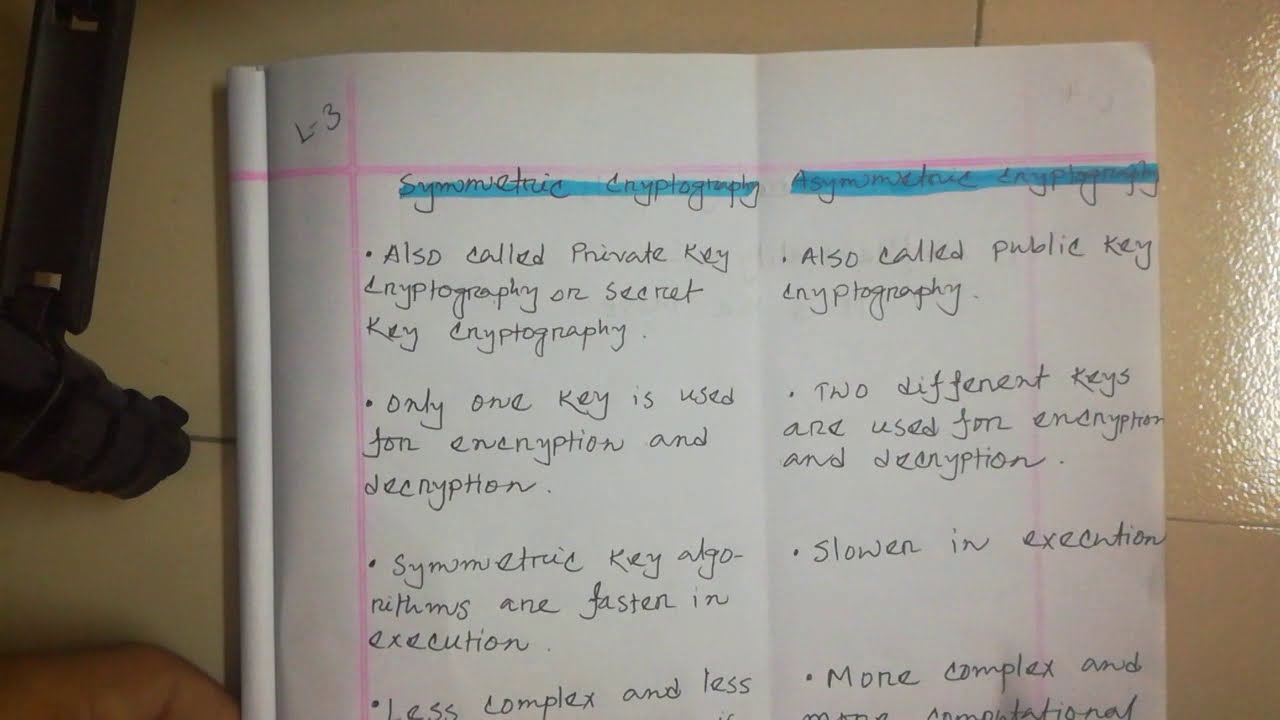 L-3
Symmetric Cryptography
• Also called Private Key
Cryptography or secret
Key Cryptography.
• Only one key is used
for encryption and
decryption.
• Symmetric Key algo-
rithms are faster in
execution.
• Less complex and less
is
Asymmetric Cryptography
• Also called public Key
Cryptography.
• Two different keys
are used for encryption
and decryption.
• Slower in execution
• More complex and
more computational